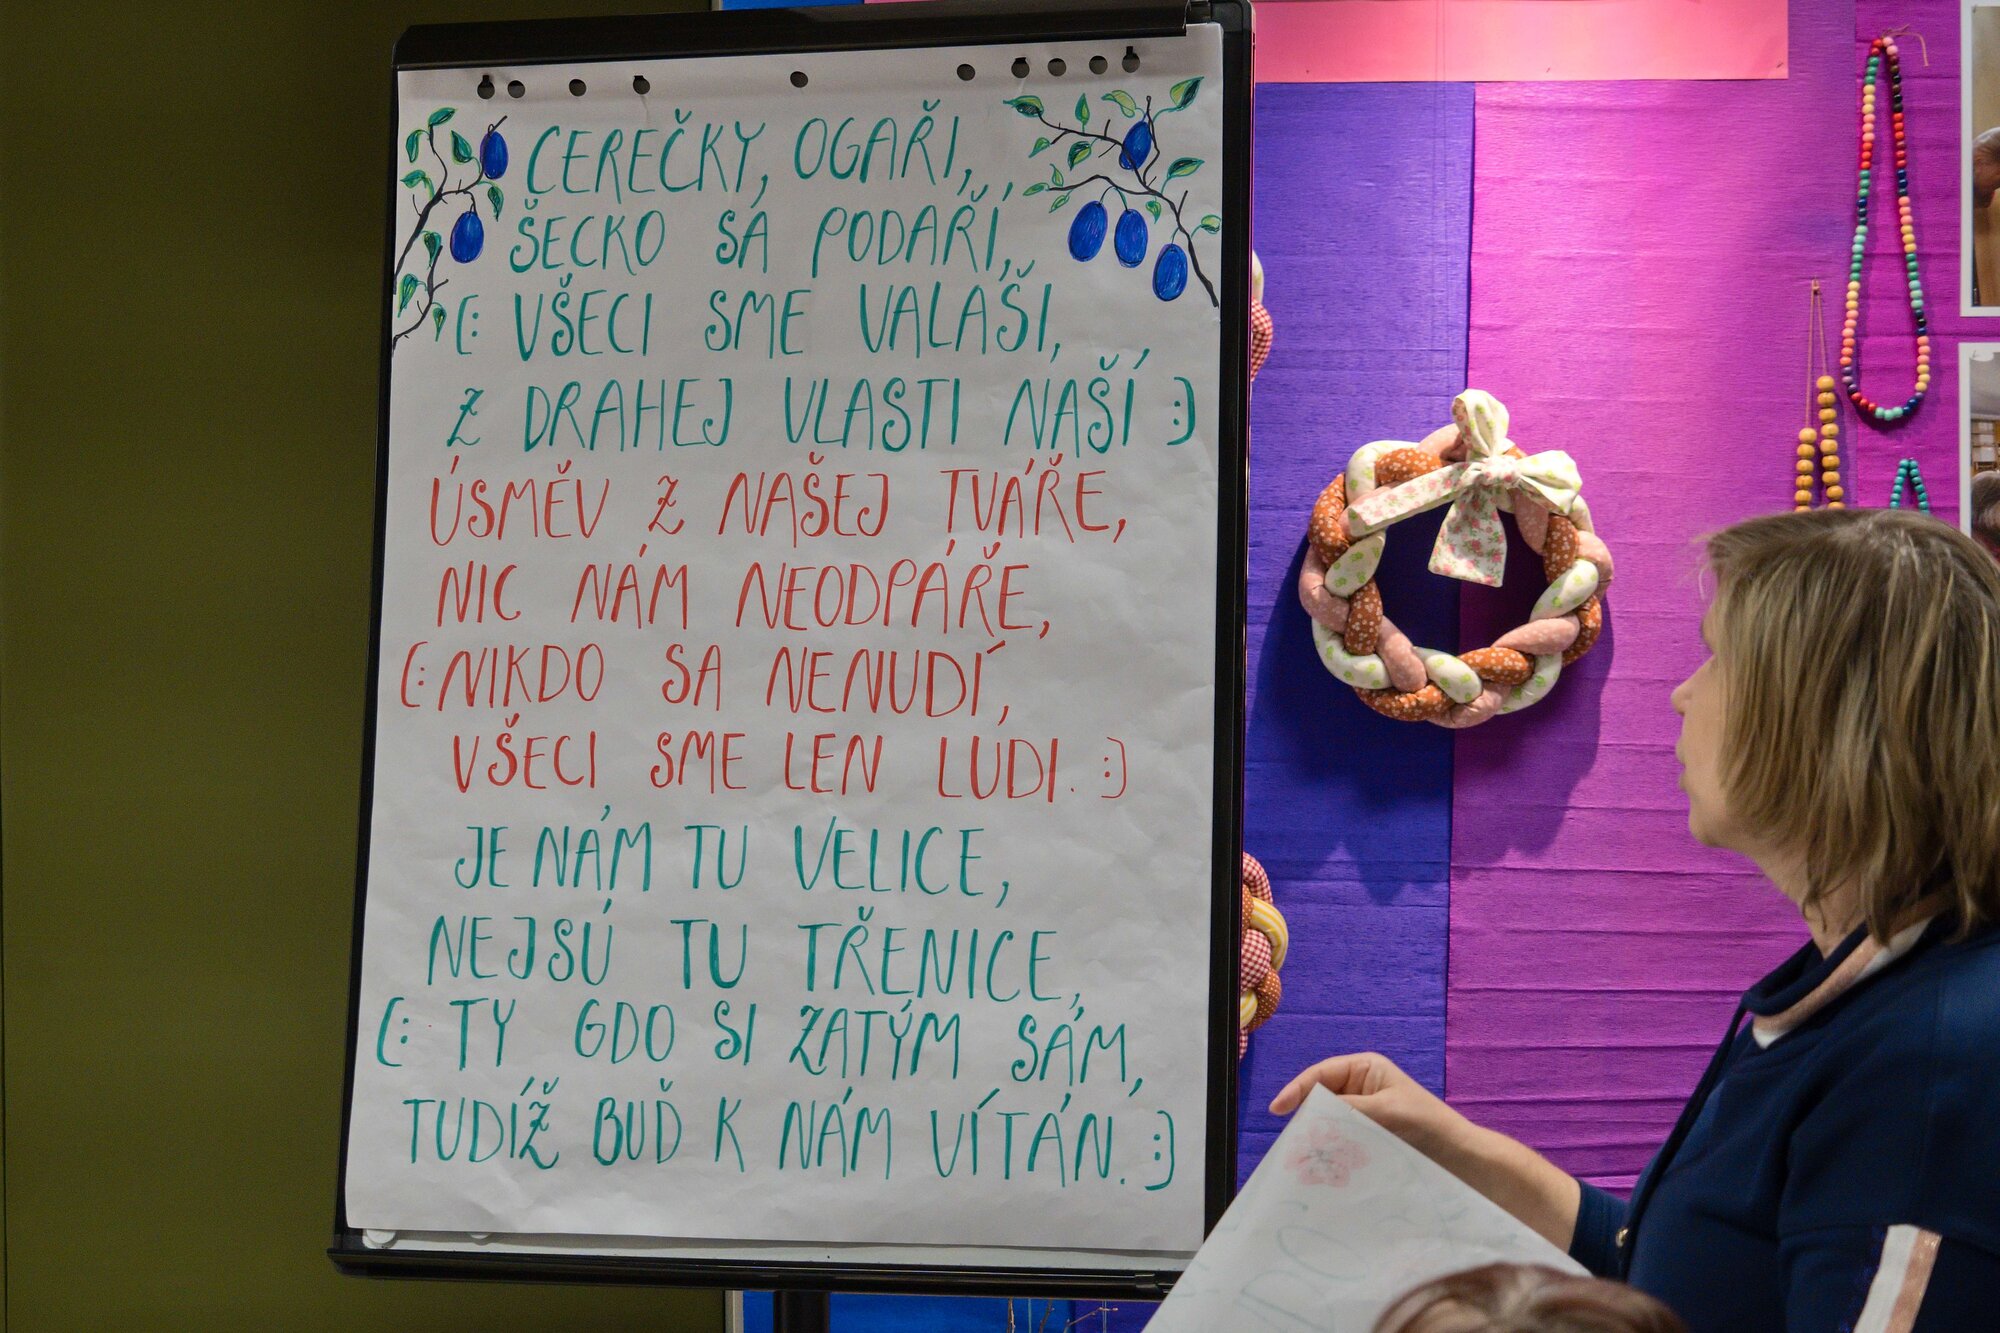 CEREČKY, OGAŘI,
ŠECKO SA PODAŘÍ,
(: VŠECI SME VALAŠI,
Z DRAHEJ VLASTI NAŠÍ :)
ÚSMĚV Z NAŠEJ TVÁŘE,
NIC NÁM NEODPÁŘE,
(: NIKDO SA NENUDÍ,
VŠECI SME LEN LUDI. :)
JE NÁM TU VELICE,
NEJSÚ TU TŘENICE,
(: TY GDO SI ZATÝM SÁM,
TUDÍŽ BUĎ K NÁM VÍTÁN. :)